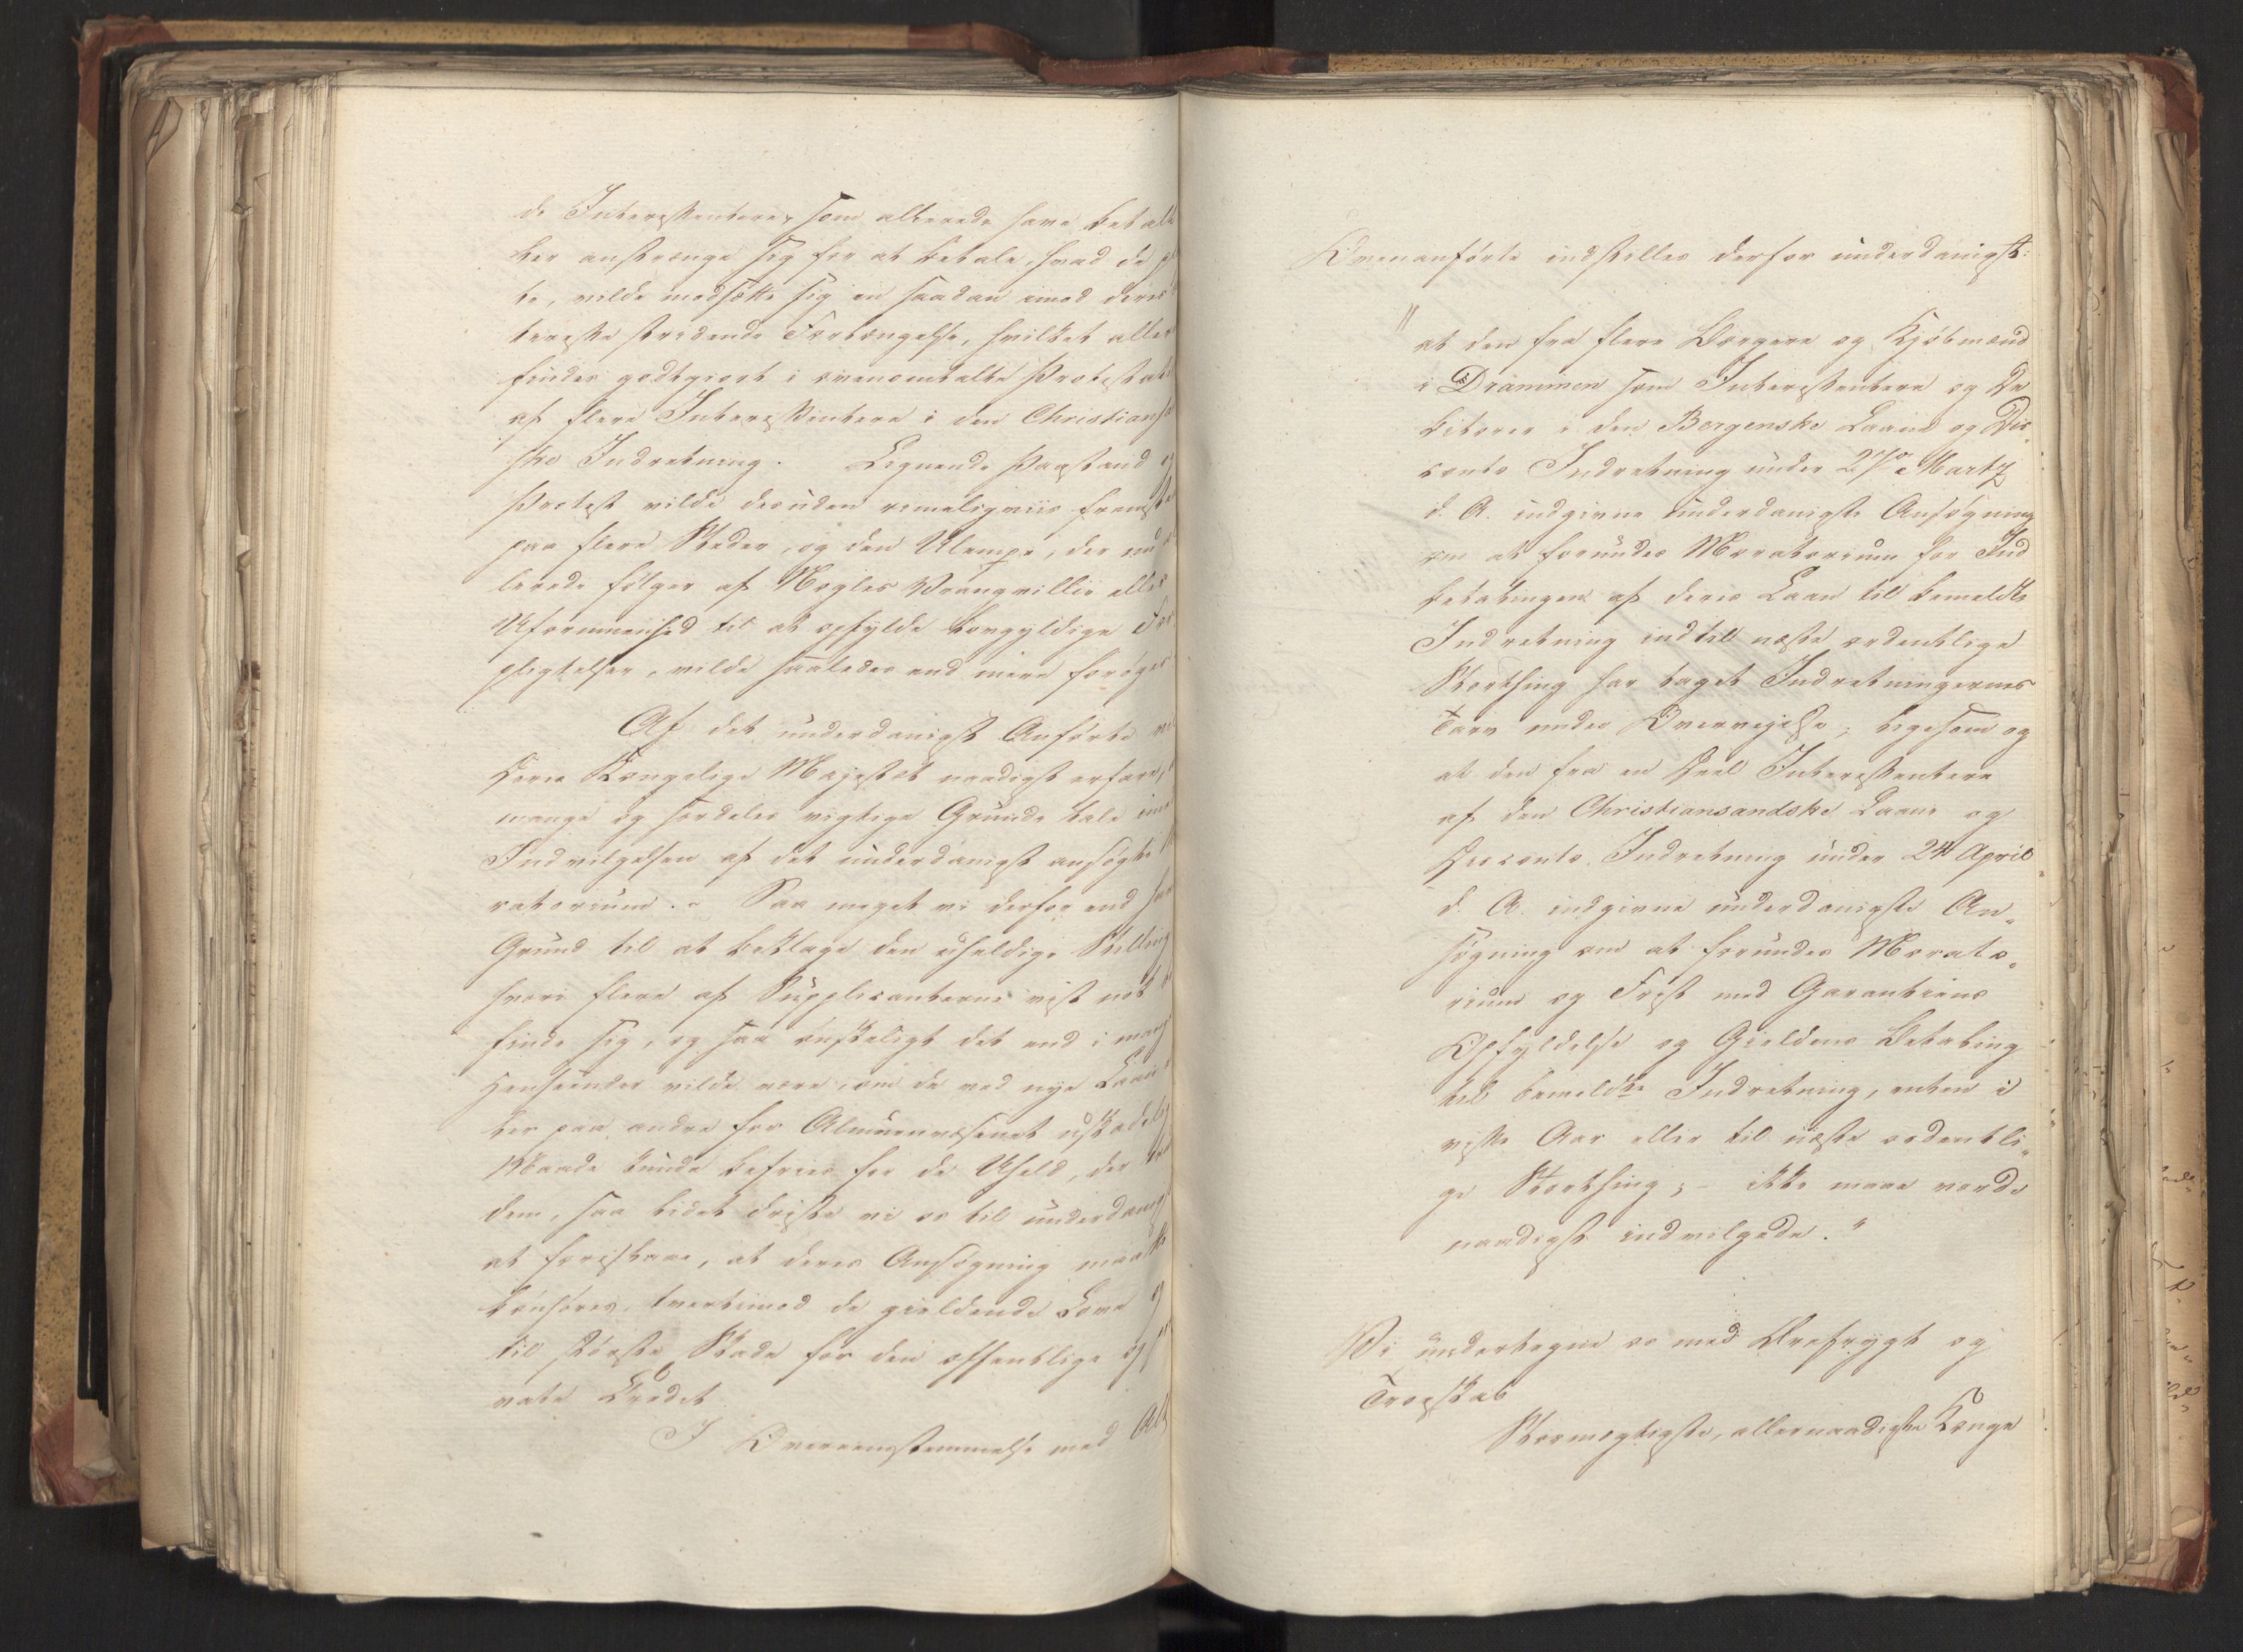 de Interessentere, som allerede have betalt
ler anstrænge sig for at betale, hvad de
te, vilde modsætte sig en saadan imod deres
teresse stridende Forlængelse, hvilket aller
findes godtgiort i ovenomtalte Protest
af flere Interessentere i den Christiansa
ske Indretning. Lignende Paastand
Protest vilde desuden rimeligviis fremsæ
paa flere Steder, og den Ulempe, der nu al
lerede følger af Nogles Vrangvillie eller
Uformuenhed til at opfylde lovgyldige For
pligtelser, vilde saaledes end mere forøges
Af det underdanigst Anførte vil
Deres Kongelige Majestæt naadigst erfare,
mange og særdeles vigtige Grunde tale imod
Indvilgelsen af det underdanigst ansøgte
ratorium. Saa meget vi derfor end have
Grund til at beklage den uheldige Stilling
hvori flere af Supplicanterne vist nok
finde sig, og saa ønskeligt det end i mange
Henseender vilde være, om de ved nye Laan
ler paa anden for Almeenvæsenet uskadelig
Maade kunde befries for de Uheld, der
dem, saa lidet driste vi os til underdanigst
at foreslaae, at deres Ansøgning maatte
bønhøres, tvertimod de gieldende Love
til største Skade for den offentlige og
vate Credit
I Overeensstemmelse med Alt
Ovenanførte indstilles derfor underdanigst:
"at den fra flere Borgere og Kjøbmænd
i Drammen som Interessentere og De
bitorer i den Bergenske Laane og Dis
conto Indretning under 27de Martz
d. A. indgivne underdanigste Ansøgning
om at forundes Moratorium for Ind
betalingen af deres Laan til bemeldte
Indretning indtil næste ordentlige
Storthing har taget Indretningernes
Tarv under Overveielse; ligesom og
at den fra en Deel Interessentere
af den Christiansandske Laane og
Disconto Indretning under 24 April
d. A. indgivne underdanigste An„
søgning om at forundes Morato„
rium og Frist med Garantiens
Opfyldelse og Gieldens Betaling
til bemeldte Indretning, enten i
visse Aar eller til næste ordentli„
ge Storthing; - ikke maae vorde
naadigst indvilgede."
Vi undertegne os med Ærefrygt og
Troskab
Stormægtigste, allernaadigste Konge